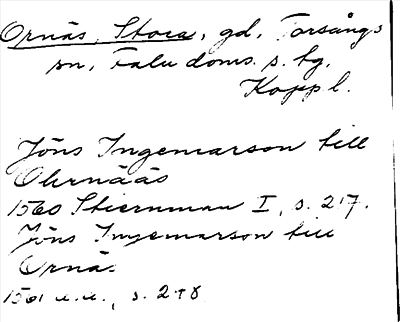 Ornäs, Stora, gd, Torsångs
sn, Falu doms. s. bg,
Kopp l.
Jöns Ingemarson till
Ohrnääs
1560 Stiernman I, s. 217.
Jöns Ingemarson till
Ornäs
1561 u.a., s. 218